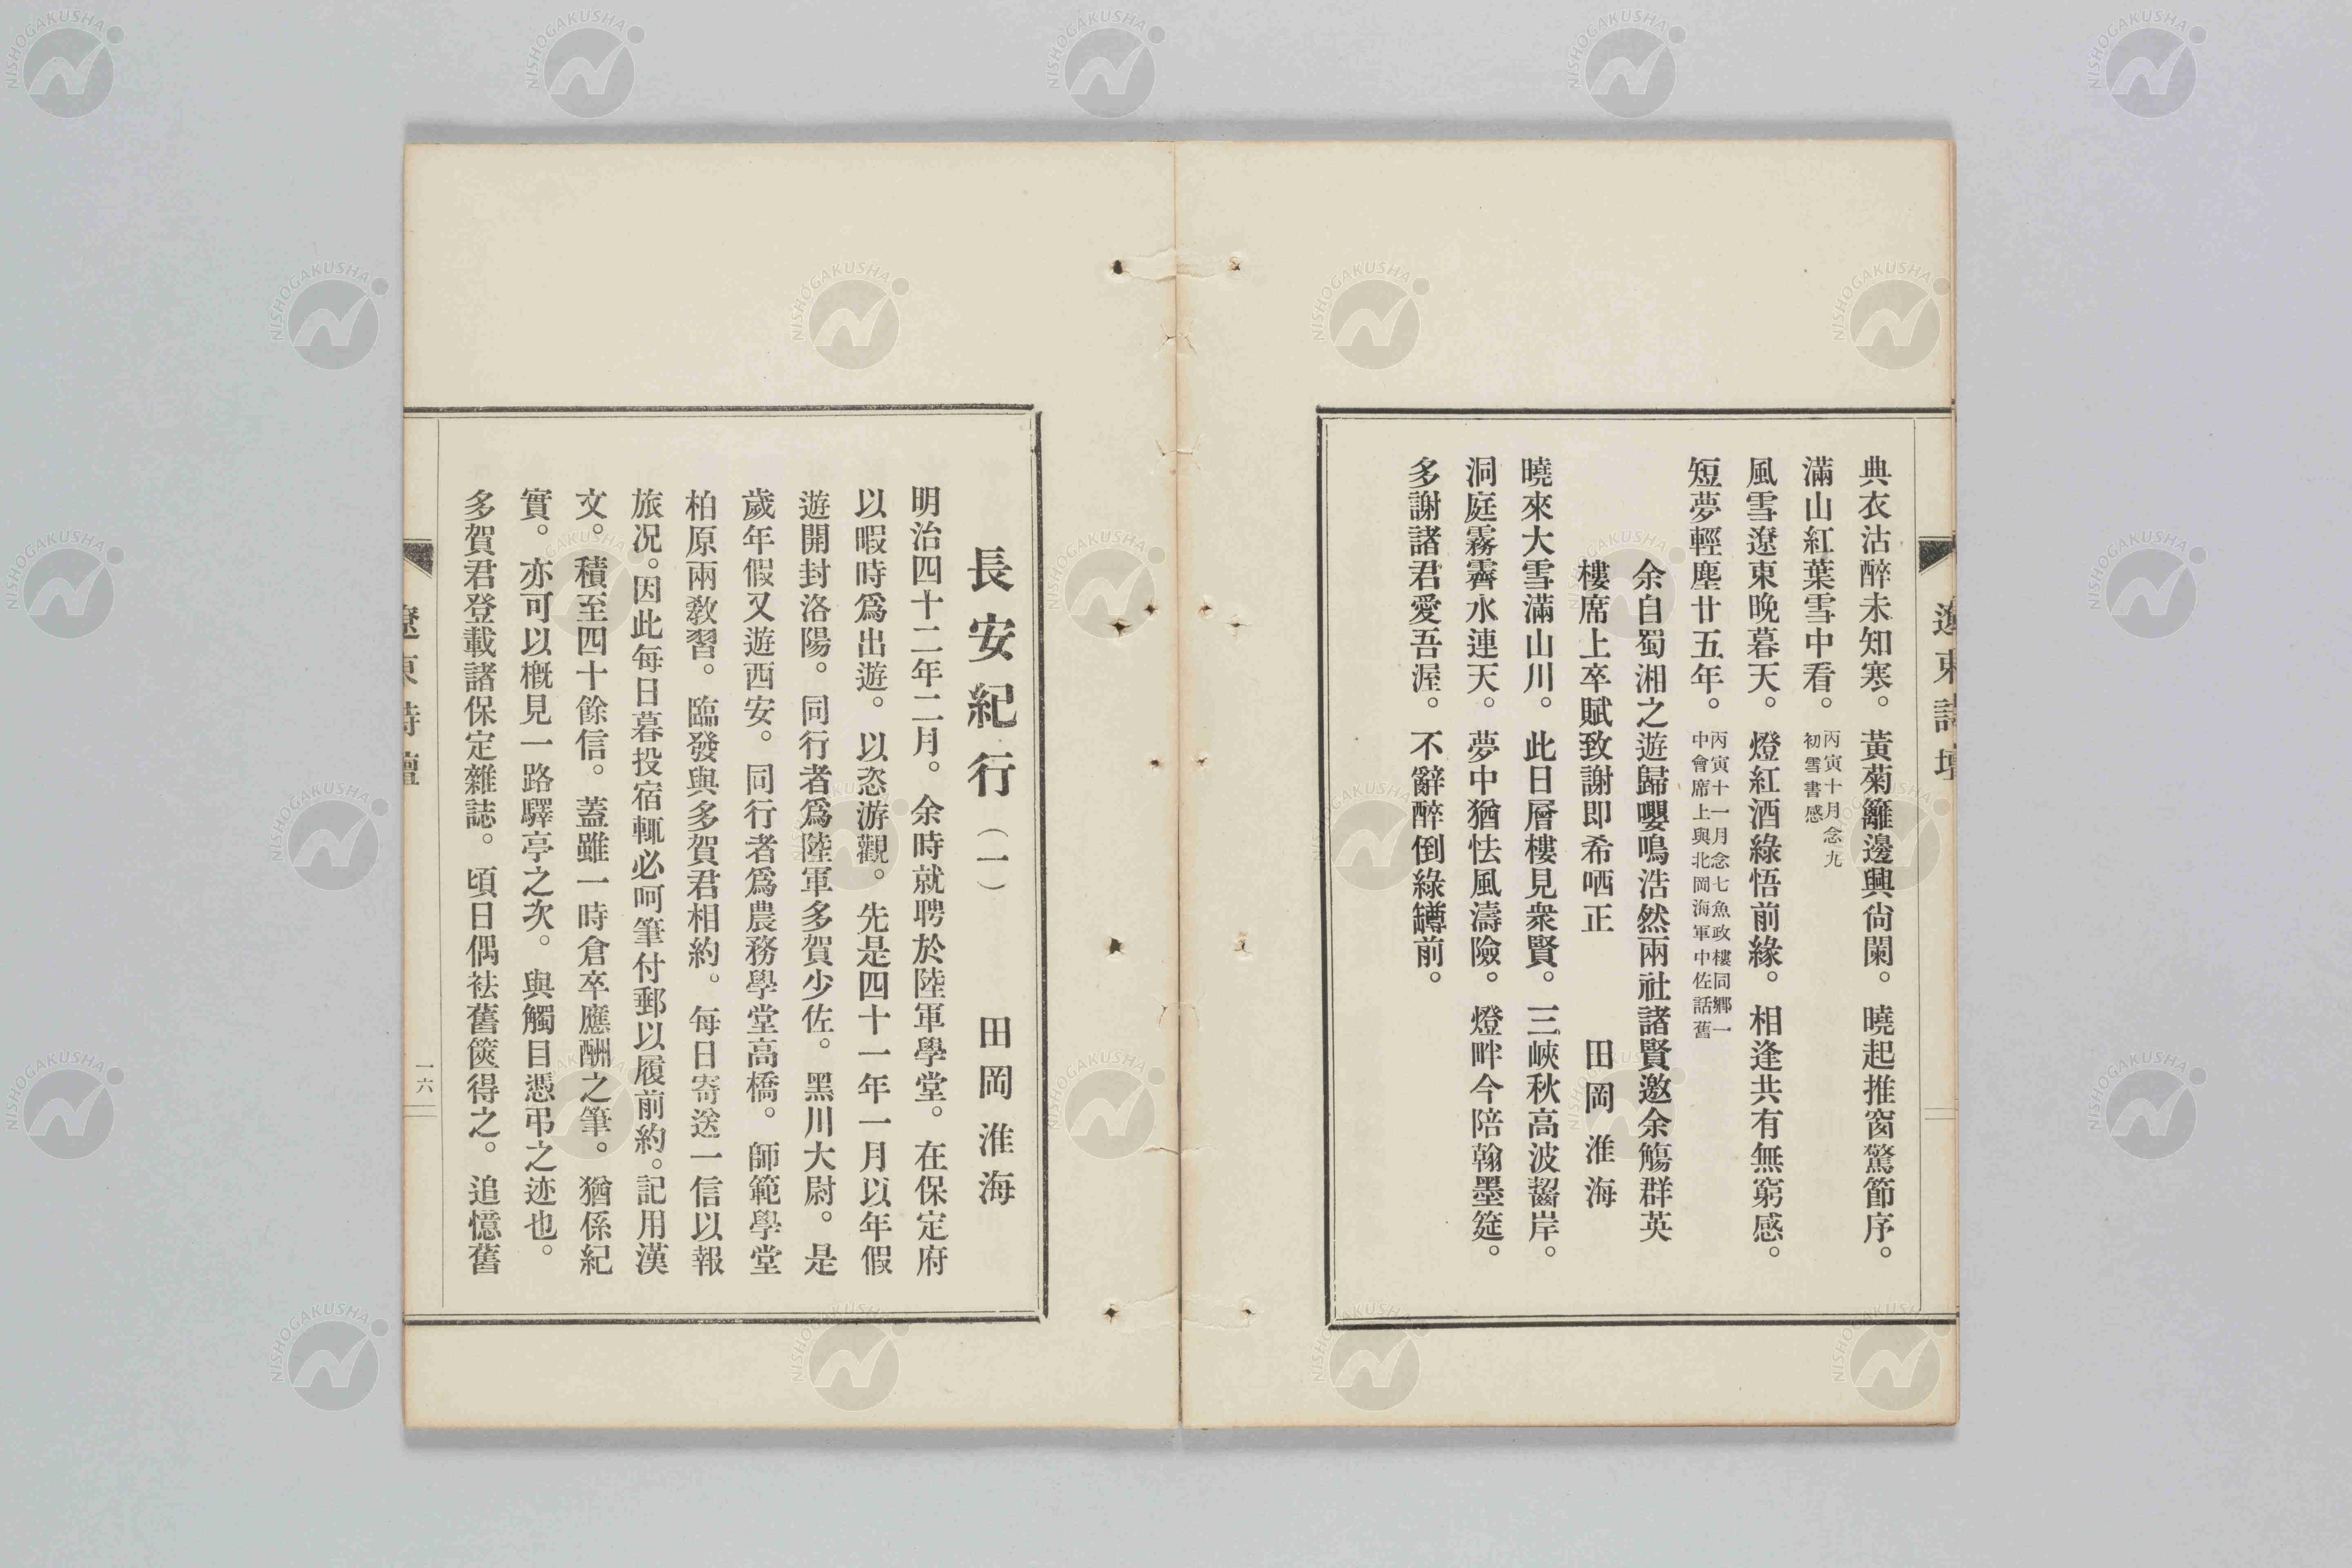 遼東詩壇
典衣沽醉未知寒。黃菊籬邊興尙闌。曉起推窗驚節序。
滿山紅葉雪中看。丙寅十月念九
初雪書感
風雪遼東晚暮天。燈紅酒綠悟前緣。相逢共有無窮感。
短夢輕塵廿五年。丙寅十一月念七魚政樓同鄉一
中會席上與北岡海軍中佐話舊
余自蜀湘之遊歸嚶鳴浩然兩社諸賢邀余觴群英
樓席上卒賦致謝即希哂正 田岡淮海
曉來大雪滿山川。此日層樓見衆賢。三峽秋高波齧岸。
洞庭霧霽水連天。夢中猶怯風濤險。燈畔今陪翰墨筵。
多謝諸君愛吾渥。不辭醉倒綠罇前。
長安紀行(一) 田岡淮海
明治四十二年二月。余時就聘於陸軍學堂。在保定府
以暇時爲出遊。以恣游觀。先是四十一年一月以年假
遊開封洛陽。同行者爲陸軍多賀少佐。黑川大尉。是
歲年假又遊西安。同行者爲農務學堂高橋。師範學堂
柏原兩敎習。臨發與多賀君相約。每日寄送一信以報
旅况。因此每日暮投宿輒必呵筆付郵以履前約。記用漢
文。積至四十餘信。蓋雖一時倉卒應酬之筆。猶係紀
實。亦可以槪見一路驛亭之次。與觸目憑弔之迹也。
多賀君登載諸保定雜誌。頃日偶祛舊篋得之。追憶舊
遼東詩壇
一六
NISHOGAKUSHA